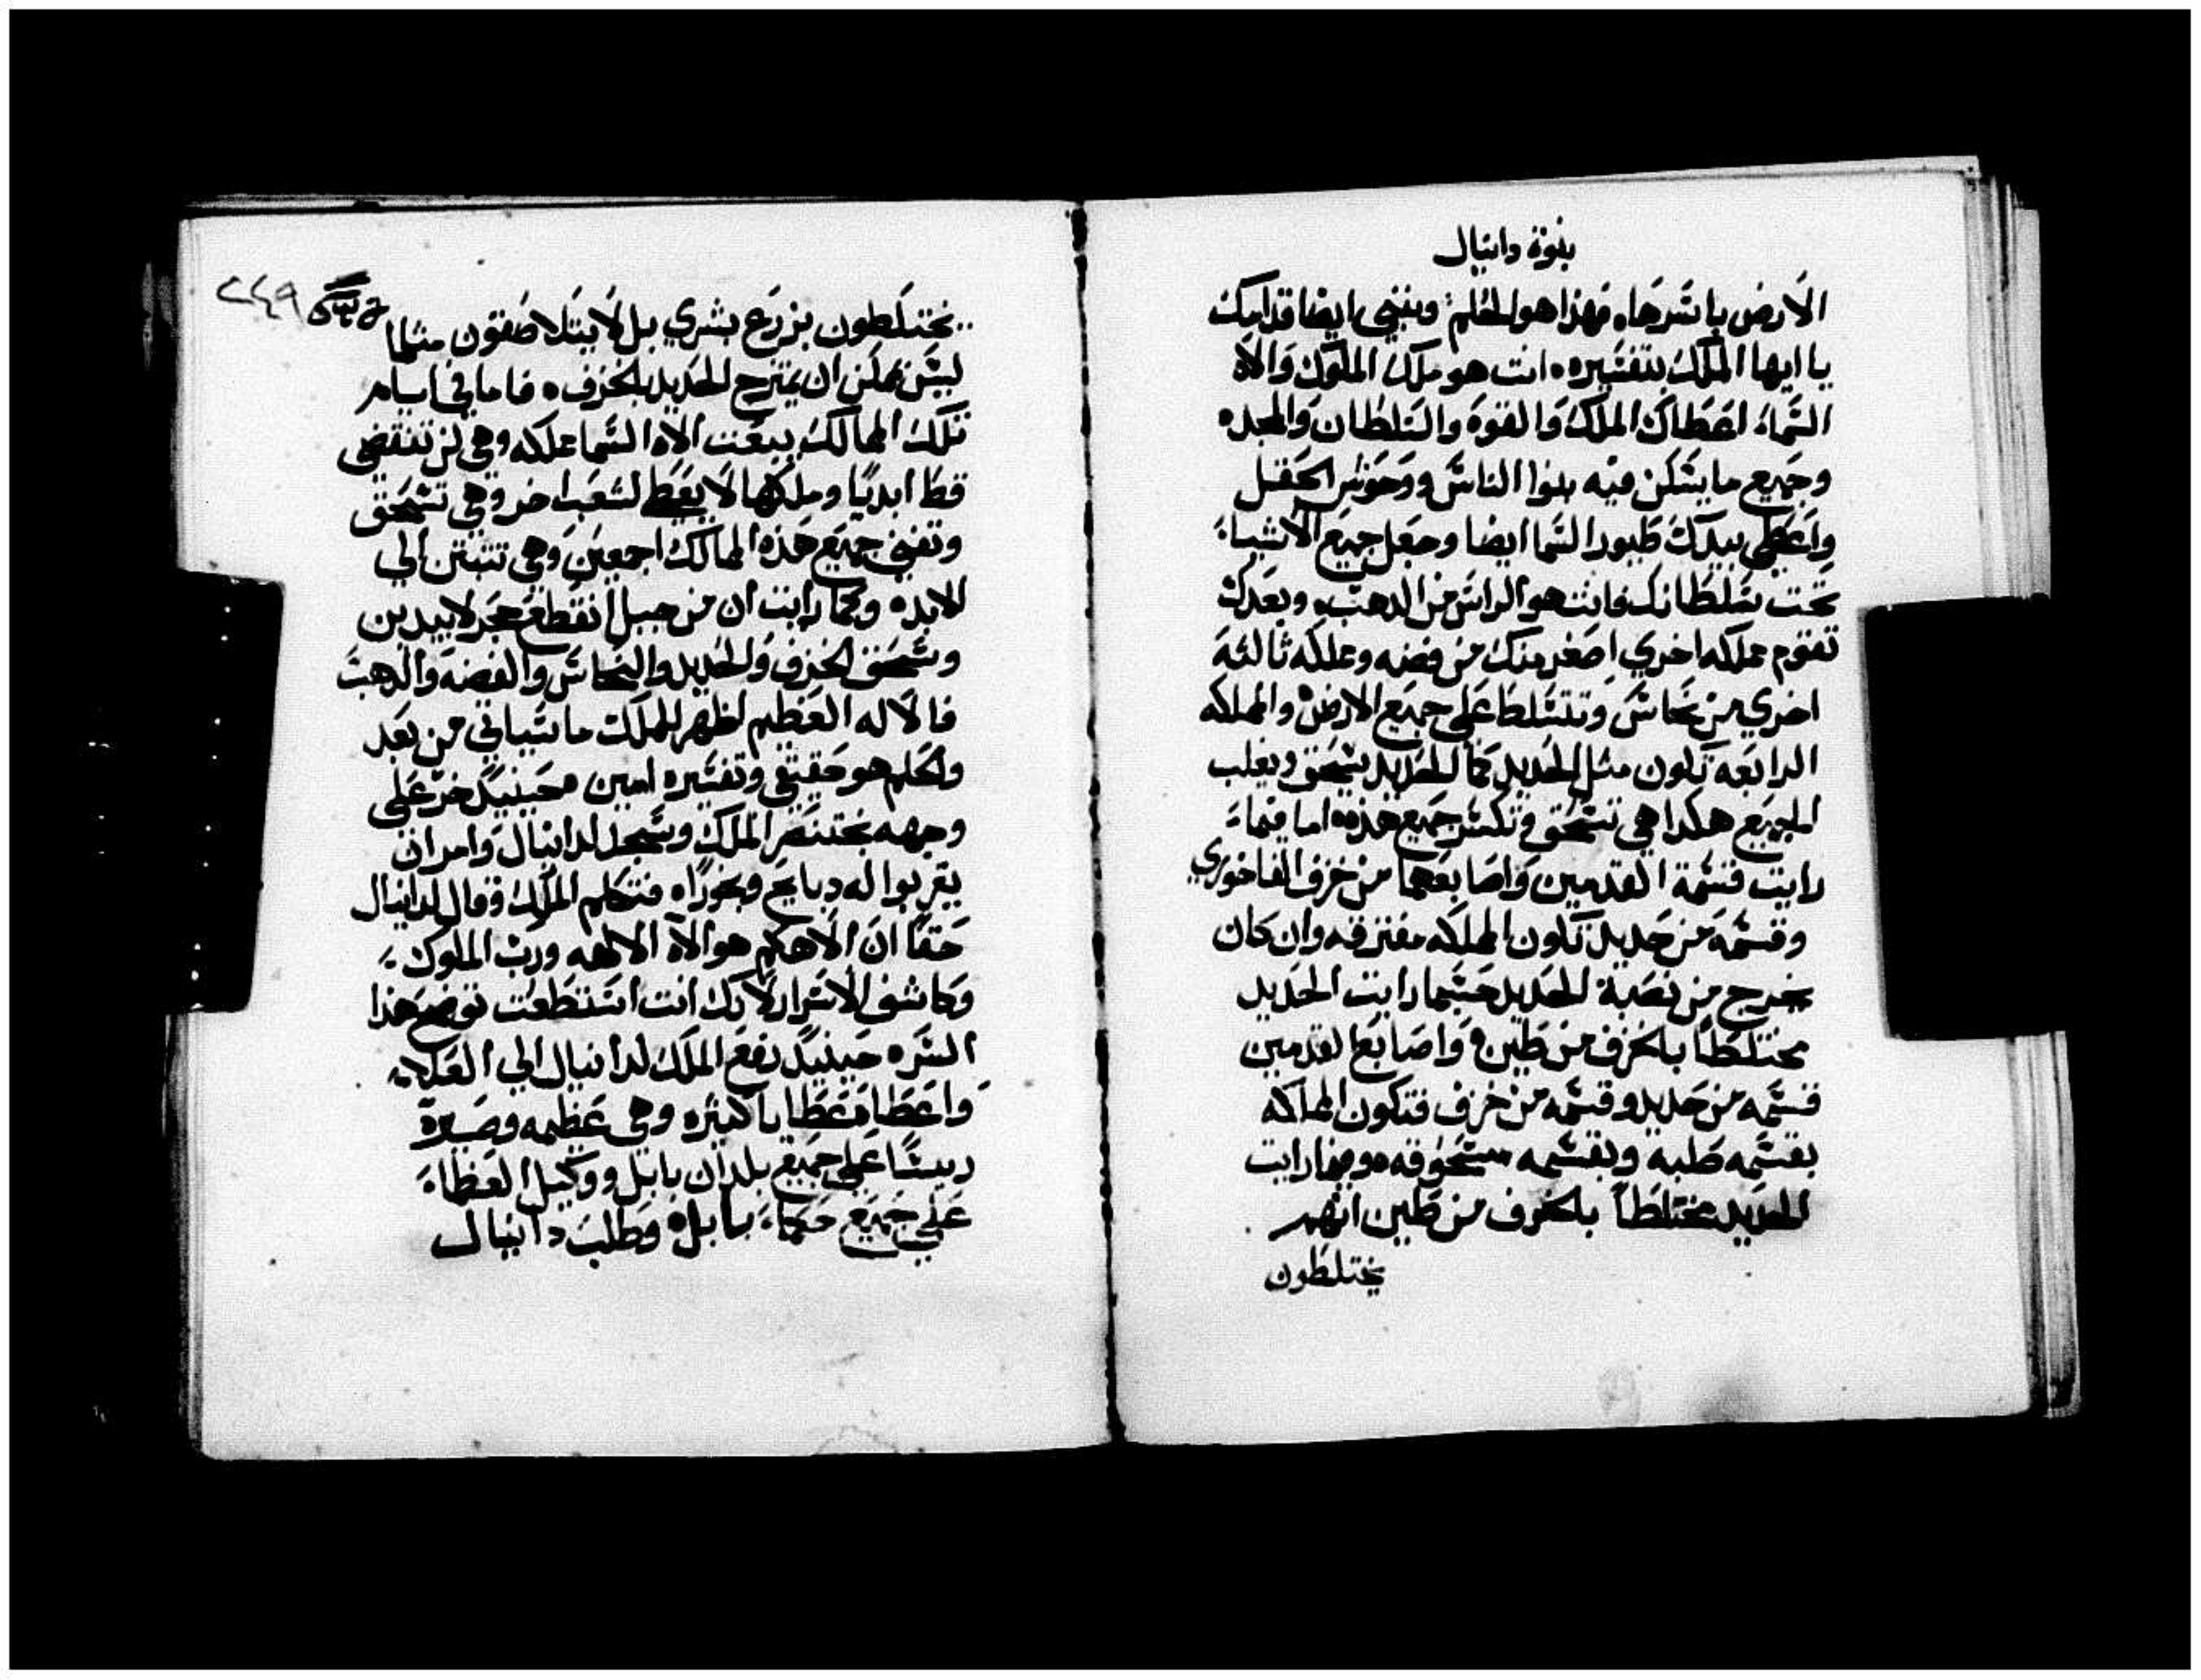 بنوة دانيال
الارض باسرها. فهذا هو الحلم. وننبي ايضا قدامك
يا ايها الملك بتفسيره. انت هو ملك الملوك والاه
السماء اعطاك الملك والقوة والسلطان والمجد.
وجميع ما يسكن فيه بنوا الناس ووحوش الحقل
واعطي بيدك طيور السما ايضا وجعل جميع الاشياء
تحت سلطانك فانت هو الراس من الدهب. وبعدك
تقوم مملكه اخري اصغر منك من فضه ومملكه ثالثة
اخري من نحاس وتتسلط علي جميع الارض والمملكه
الرابعه تكون مثل الحديد كما الحديد يسحق ويغلب
الجميع هكدا هي تسحق وتكسر جميع هذه. اما فيماء
رايت قسمة القدمين واصابعهما من خزف الفاخوري
وقسمة من حديد تكون المملكه مفترقه وان كان
يخرج من نصبة الحديد حسبما رايت الحديد
مختلطا بالخزف من طين. واصابع القدمين
قسمه من حديد وقسمه من خزف فتكون المملكه
بقسمه صلبة وبقسمه مسحوقه. وبما رايت
الحديد مختلطا بالخزف من طين انهم
يختلطون
٢٤٩
يختلطون بزرع بشري بل لا يتلاصقون مثلما
ليس يمكن ان يمتزج الحديد بالخزف. فاما في ايام
تلك الممالك يبعت الاه السما مملكه وهي لن تنقضي
قط ابديا وملكها لا يعطي لشعب اخر وهي تسحق
وتفني جميع هذه الممالك اجمعين وهي تتبتن الي
الابد. وكما رايت ان من جبل انقطع حجر لا بيدين
وسحق الخزف والحديد والنحاس والفضة والدهب
فالاله العظيم اظهر للملك ما سياتي من بعد
والحلم هو حقيقي وتفسيره امين. حينيد خر علي
وجهه بختنصر الملك وسجد لدانيال وامر ان
يقربوا له دبايح وبخورا. فتكلم الملك وقال لدانيال
حقا ان الاهكم هو الاه الالهه ورب الملوك
وكاشف الاسرار لانك انت استطعت توضح هذا
السر. حينيد رفع الملك لدانيال الي العلاء
واعطاه عطايا كثيره وهي عظيمه وصيره
ريسا علي جميع بلدان بابل ووكيل العظماء
علي جميع حكماء بابل. وطلب دانيال